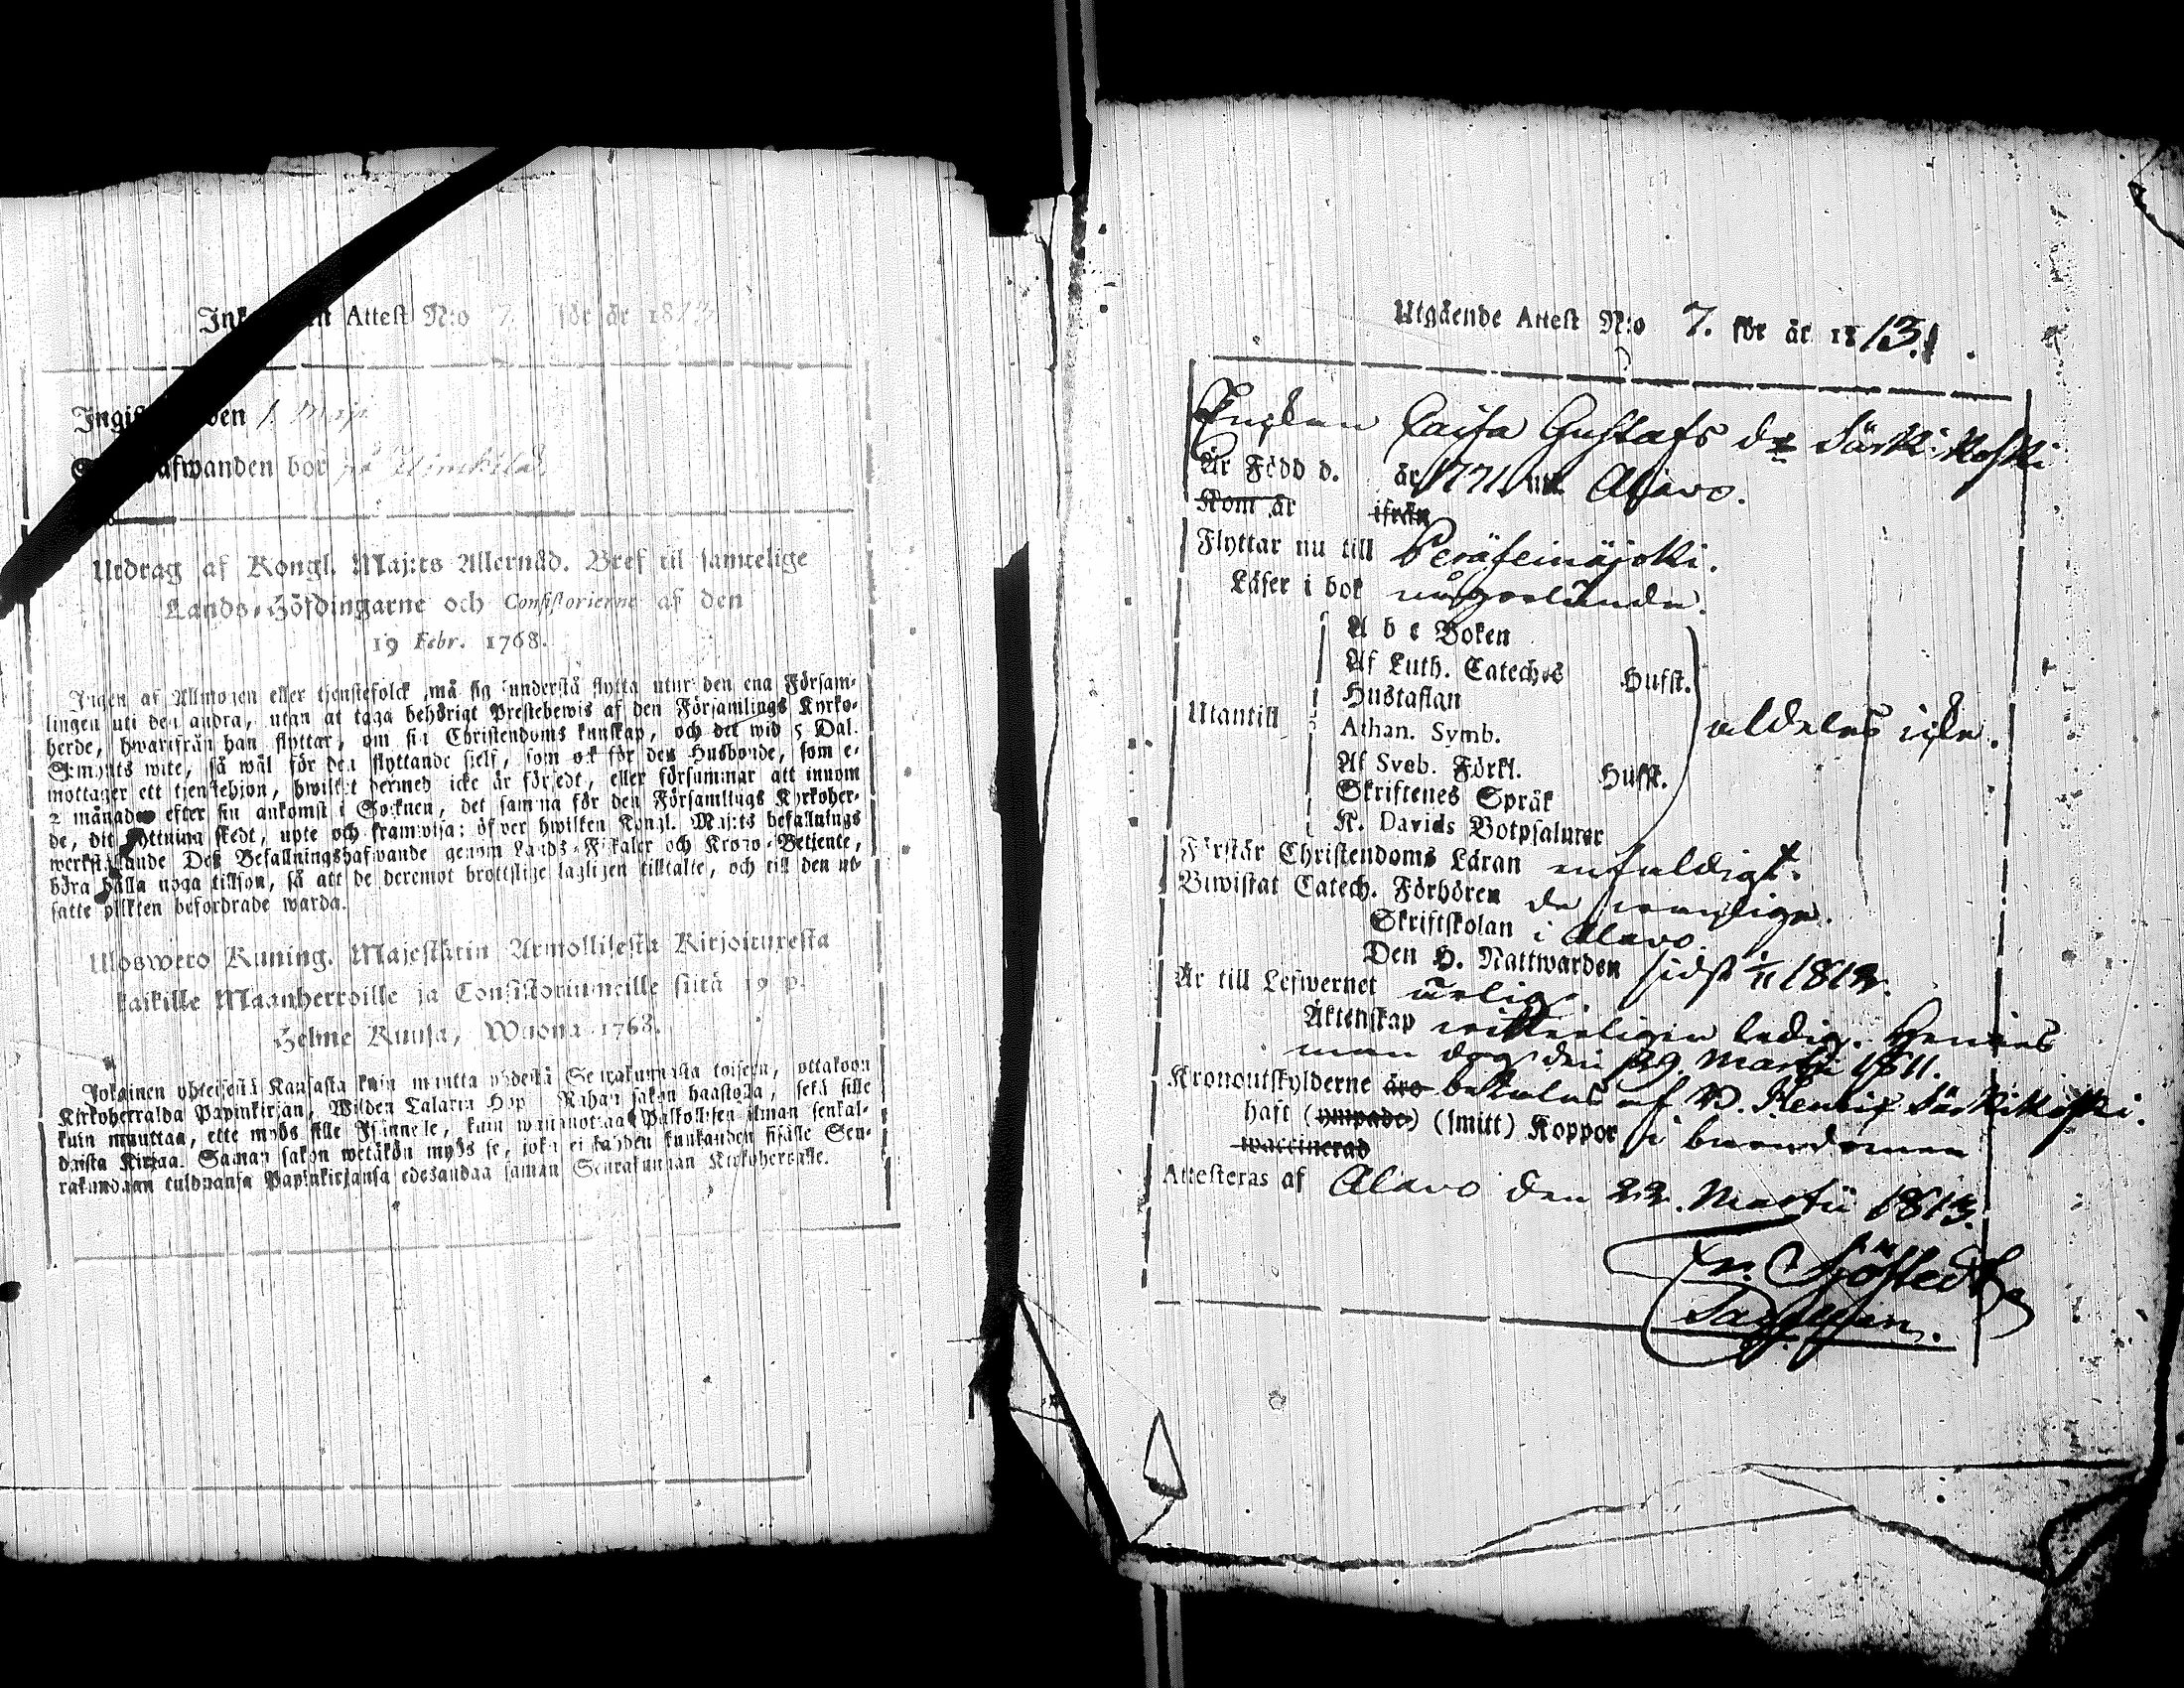 Attest N:o 7. för år 1813
den 1. Maji
bor på
Utdrag af Kongl. Maj:ts Allernåd. Bref til samtelige
Lands-Höfdingarne och Consistorierne af den
19 Febr. 1768.
Ingen af Allmogen eller tjenstefolck må sig understå flytta utur den ena Försam-
lingen uti den andra, utan at taga behörigt Prestebewis af den Församlings Kyrko-
herde, hwarifrån han flyttar, om sin Christendoms kunskap, och det wid 5 Dal.
S:mynts wite, så wäl för den flyttande sjelf, som ock för den Husbonde, som e-
mottager ett tjenstehjon, hwilket dermed icke är försedt, eller försummar att innom
2 månader efter sin ankomst i Socknen, det samma för den Församlings Kyrkoher-
de, dit flyttning skedt, upte och framwisa: öfwer hwilken Kongl. Maj:ts befallnings
werkställande Des Befallningshafwande genom Lands-Fiskaler och Krono-Betjente,
böra hålla noga tillsyn, så att de deremot brottslige lagligen tilltalte, och till den ut-
satte plikten befordrade warda.
Uloswero Kuning. Majestätin Armollisesta Kirjoituresta
kaikille Maanherroille ja Consistoriumeille siitä 19 p.
Helme Kuusa, Wuona 1768.
Jokainen yhteisestä Kansasta kuin muutta yhdestä Seurakunnasta toiseen, ottakoon
Kirkoherralda Papinkirjan, Wiiden Talarin Hop. Rahan sakon haastolla, sekä sille
kuin muuttaa, ette myös sille Isännelle, kuin wastanottaa Palkollisen ilman senkal-
daista Kirjaa. Saman sakon wetäkön myös se, joka ei kahden kuukauden sisälle Seu-
rakundaan tulduansa Papinkirjansa edesandaa saman Seurakunnan Kirkoherralle.
Utgående Attest N:o 7. för år 1813.
Enkan Caisa Gustafs dr Särkikoski
Är Född d. år 1771 uti Alavo.
Kom år ifrån
Flyttar nu till Peräseinäjoki.
Läser i bok någorlunda.
A b c Boken
Af Luth. Cateches Husst.
Hustaflan
Utantill aldeles icke.
Athan. Symb.
Af Sveb. Förkl. Husst.
Skriftenes Språk
K. Davids Botpsalmer
Förstår Christendoms Läran enfaldigt.
Biwistat Catech. Förhören de wanliga.
Skriftskolan i Alavo
Den H. Nattwarden sidst 1/11 1812.
Är till Lefwernet ärlig.
Äktenskap witterligen ledig. Hennes
man dog den 29. Martii 1811.
Kronoutskylderne äro betalas af B. Henric Särkikoski.
haft (ympade) (smitt) Koppor i barndomen
waccinerad
Attesteras af Alavo den 22. Martii 1813.
Fr. Sjöstedt